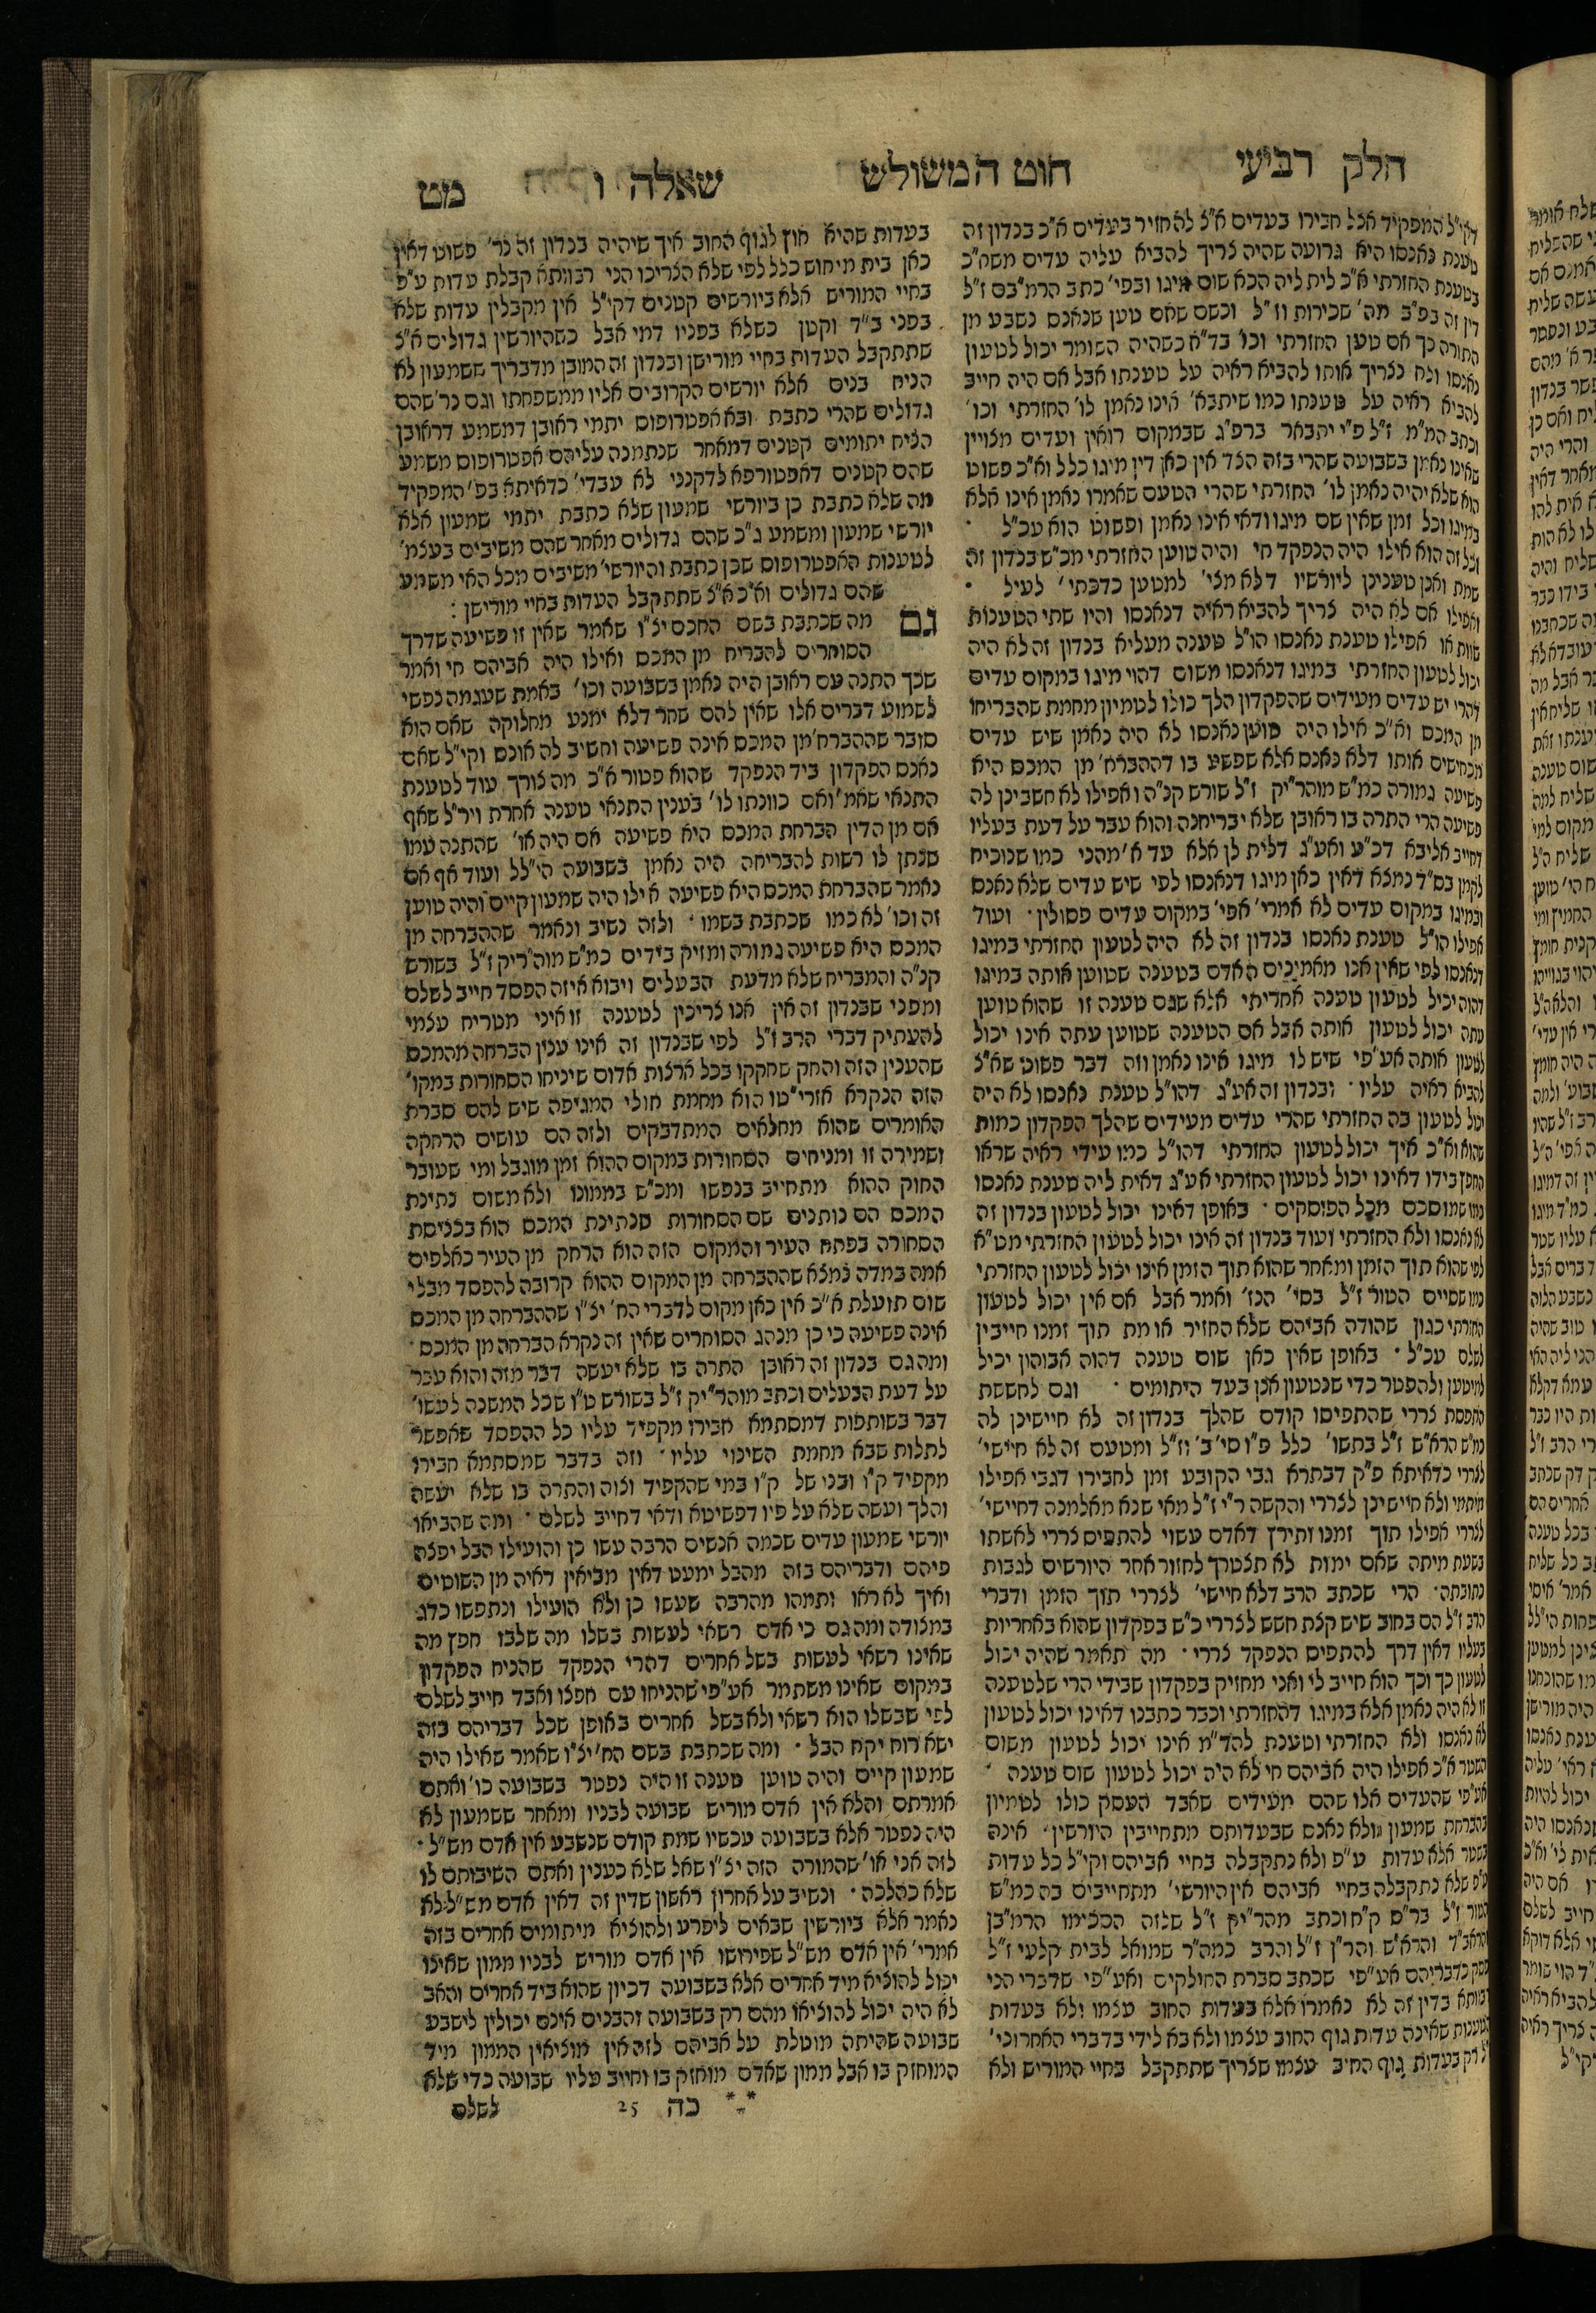 חלק רביעי חוט המשולש שאלה ו מט
דקי"ל המפקיד אצל חבירו בעדים א"צ להחזיר בעדים א"כ בנדון זה
טענת נאנסו היא גרועה שהיה צריך להביא עליה עדים משא"כ
בטענת החזרתי א"כ לית ליה הכא שום מיגו ובפי' כתב הרמ"בם ז"ל
דין זה בפ"ב מה' שכירות וז"ל וכשם שאם טען שנאנס נשבע מן
התורה כך אם טען החזרתי וכו' בד"א כשהיה השומר יכול לטעון
נאנסו ולא נצריך אותו להביא ראיה על טענתו אבל אם היה חייב
להביא ראיה על טענתו כמו שיתבא' אינו נאמן לו' החזרתי וכו'
וכתב המ"מ ז"ל פ"י יתבאר ברפ"ג שבמקום רואין ועדים מצויין
שאינו נאמן בשבועה שהרי בזה הצד אין כאן דין מיגו כלל וא"כ פשוט
הוא שלא יהיה נאמן לו' החזרתי שהרי הטעם שאמרו נאמן אינו אלא
במיגו וכל זמן שאין שם מיגו ודאי אינו נאמן ופשוט הוא עכ"ל
וכל זה הוא אילו היה הנפקד חי והיה טוען החזרתי מכ"ש בנדון זה
שמת ואנן טענינן ליורשיו דלא מצי' למטען כדכתי' לעיל
ואפילו אם לא היה צריך להביא ראיה דנאנסו והיו שתי הטענות
שוות או אפילו טענת נאנסו הו"ל טענה מעליא בנדון זה לא היה
יכול לטעון החזרתי במיגו דנאנסו משום דהוי מיגו במקום עדים
דהרי יש עדים מעידים שהפקדון הלך כולו לטמיון מחמת שהבריחו
מן המכס וא"כ אילו היה טוען נאנסו לא היה נאמן שיש עדים
מכחישים אותו דלא נאנס אלא שפשע בו דההברח' מן המכס היא
פשיעה גמורה כמ"ש מוהר"יק ז"ל שורש קנ"ה ואפילו לא חשבינן לה
פשיעה הרי התרה בו ראובן שלא יבריחנה והוא עבר על דעת בעליו
דחייב אליבא דכ"ע ואע"ג דלית לן אלא עד א' מהני כמו שנוכיח
לקמן בס"ד נמצא דאין כאן מיגו דנאנסו לפי שיש עדים שלא נאנס
ובמיגו במקום עדים לא אמרי' אפי' במקום עדים פסולין · ועוד
אפילו הו"ל טענת נאנסו בנדון זה לא היה לטעון החזרתי במיגו
דנאנסו לפי שאין אנו מאמינים האדם בטענה שטוען אותה במיגו
דהוה יכיל לטעון טענה אחריתי אלא שגם טענה זו שהוא טוען
עתה יכול לטעון אותה אבל אם הטענה שטוען עתה אינו יכול
לטעון אותה אע"פי שיש לו מיגו אינו נאמן וזה דבר פשוט שא"צ
להביא ראיה עליו · ובנדון זה אע"ג דהו"ל טענת נאנסו לא היה
יכול לטעון בה החזרתי שהרי עדים מעידים שהלך הפקדון כמות
שהוא וא"כ איך יכול לטעון החזרתי דהו"ל כמו עידי ראיה שראו
החפץ בידו דאינו יכול לטעון החזרתי אע"ג דאית ליה טענת נאנסו
כמו שמוסכם מכל הפוסקים · באופן דאינו יכול לטעון בנדון זה
לא נאנסו ולא החזרתי ועוד בנדון זה אינו יכול לטעון החזרתי מט"א
לפי שהוא תוך הזמן ומאחר שהוא תוך הזמן אינו יכול לטעון החזרתי
כמו שסיים הטור ז"ל בסי' הנז' ואמר אבל אם אין יכול לטעון
החזרתי כגון שהודה אביהם שלא החזיר או מת תוך זמנו חייבין
לשלם עכ"ל · באופן שאין כאן שום טענה דהוה אבוהון יכיל
למיטען ולהפטר כדי שנטעון אנן בעד היתומים · וגם לחששת
התפסת צררי שהתפיסו קודם שהלך בנדון זה לא חיישינן לה
כמ"ש הרא"ש ז"ל בתשו' כלל פ"ו סי' ב' וז"ל ומטעם זה לא חיישי'
לצררי כדאיתא פ"ק דבתרא גבי הקובע זמן לחבירו דגבי אפילו
מיתמי ולא חיישינן לצררי והקשה ר"י ז"ל מאי שנא מאלמנה דחיישי'
לצררי אפילו תוך זמנו ותירץ דאדם עשוי להתפיס צררי לאשתו
בשעת מיתה שאם ימות לא תצטרך לחזור אחר היורשים לגבות
כתובתה · הרי שכתב הרב דלא חיישי' לצררי תוך הזמן ודברי
הרב ז"ל הם בחוב שיש קצת חשש לצררי כ"ש בפקדון שהוא באחריות
בעליו דאין דרך להתפיס הנפקד צררי · מה תאמר שהיה יכול
לטעון כך וכך הוא חייב לי ואני מחזיק בפקדון שבידי הרי שלטענה
זו לא היה נאמן אלא במיגו דהחזרתי וכבר כתבנו דאינו יכול לטעון
לא נאנסו ולא החזרתי וטענת להד"מ אינו יכול לטעון משום
השטר א"כ אפילו היה אביהם חי לא היה יכול לטעון שום טענה ·
אע"פי שהעדים אלו שהם מעידים שאבד העסק כולו לטמיון
בהברחת שמעון ולא נאנס שבעדותם מתחייבין היורשין אינה
בשטר אלא עדות ע"פ ולא נתקבלה בחיי אביהם וקי"ל כל עדות
ע"פ שלא נתקבלה בחיי אביהם אין היורשי' מתחייבים בה כמ"ש
הטור ז"ל בר"ס ק"ח וכתב מהר"יק ז"ל שלזה הסכימו הרמ"בן
והראב"ד והרא"ש והר"ן ז"ל והרב כמה"ר שמואל לבית קלעי ז"ל
פסק כדבריהם אע"פי שכתב סברת החולקים ואע"פי שדברי הני
רבוותא בדין זה לא נאמרו אלא בעדות החוב עצמו ולא בעדות
הטענות שאינה עדות גוף החוב עצמו ולא בא לידי בדברי האחרוני'
ז"ל רק בעדות גוף החוב עצמו שצריך שתתקבל בחיי המוריש ולא
בעדות שהיא חוץ לגוף החוב איך שיהיה בנדון זה נר' פשוט דאין
כאן בית מיחוש כלל לפי שלא הצריכו הני רבוותא קבלת עדות ע"פ
בחיי המוריש אלא ביורשים קטנים דקי"ל אין מקבלין עדות שלא
בפני ב"ד וקטן כשלא בפניו דמי אבל כשהיורשין גדולים א"צ
שתתקבל העדות בחיי מורישן ובנדון זה המובן מדבריך ששמעון לא
הניח בנים אלא יורשים הקרובים אליו ממשפחתו וגם נר' שהם
גדולים שהרי כתבת ובא אפטרופוס יתמי ראובן דמשמע דראובן
הניח יתומים קטנים דמאחר שנתמנה עליהם אפטרופוס משמע
שהם קטנים דאפטורפא לדקנני לא עבדי' כדאיתא בפ' המפקיד
מה שלא כתבת כן ביורשי שמעון שלא כתבת יתמי שמעון אלא
יורשי שמעון ומשמע ג"כ שהם גדולים מאחר שהם משיבים בעצמ'
לטענות האפטרופוס שכן כתבת והיורשי' משיבים מכל האי משמע
שהם גדולים וא"כ א"צ שתתקבל העדות בחיי מורישן :
גם מה שכתבת בשם החכם יצ"ו שאמר שאין זו פשיעה שדרך
הסוחרים להבריח מן המכס ואילו היה אביהם חי ואמר
שכך התנה עם ראובן היה נאמן בשבועה וכו' באמת שעגמה נפשי
לשמוע דברים אלו שאין להם שחר דלא ימנע מחלוקה שאם הוא
סובר שההברח' מן המכס אינה פשיעה וחשיב לה אונס וקי"ל שאם
נאנס הפקדון ביד הנפקד שהוא פטור א"כ מה צורך עוד לטענת
התנאי שאמ' ואם כוונתו לו' בענין התנאי טענה אחרת ויר"ל שאף
אם מן הדין הברחת המכס היא פשיעה אם היה או' שהתנה עמו
שנתן לו רשות להבריחה היה נאמן בשבועה הי"לל ועוד אף אם
נאמר שהברחת המכס היא פשיעה אילו היה שמעון קיים והיה טוען
זה וכו' לא כמו שכתבת בשמו · ולזה נשיב ונאמר שההברחה מן
המכס היא פשיעה גמורה ומזיק בידים כמ"ש מוה"ריק ז"ל בשורש
קנ"ה והמבריח שלא מדעת הבעלים ויבוא איזה הפסד חייב לשלם
ומפני שבנדון זה אין אנו צריכין לטענה זו איני מטריח עצמי
להעתיק דברי הרב ז"ל לפי שבנדון זה אינו ענין הברחה מהמכס
שהענין הזה והחק שחקקו בכל ארצות אדום שיניחו הסחורות במקו'
הזה הנקרא אזרי"טו הוא מחמת חולי המגיפה שיש להם סברת
האומרים שהוא מחלאים המתדבקים ולזה הם עושים הרחקה
ושמירה זו ומניחים הסחורות במקום ההוא זמן מוגבל ומי שעובר
החוק ההוא מתחייב בנפשו ומכ"ש בממונו ולא משום נתינת
המכס הם נותנים שם הסחורות שנתינת המכס הוא בכניסת
הסחורה בפתח העיר והמקום הזה הוא הרחק מן העיר כאלפים
אמה במדה נמצא שההברחה מן המקום ההוא קרובה להפסד מבלי
שום תועלת א"כ אין כאן מקום לדברי הח' יצ"ו שההברחה מן המכס
אינה פשיעה כי כן מנהג הסוחרים שאין זה נקרא הברחה מן המכס ·
ומה גם בנדון זה ראובן התרה בו שלא יעשה דבר מזה והוא עבר
על דעת הבעלים וכתב מוהר"יק ז"ל בשורש ט"ו שכל המשנה לעשו'
דבר בשותפות דמסתמא חבירו מקפיד עליו כל ההפסד שאפשר
לתלות שבא מחמת השינוי עליו · וזה בדבר שמסתמא חבירו
מקפיד ק"ו ובני של ק"ו במי שהקפיד וצוה והתרה בו שלא יעשה
והלך ועשה שלא על פיו דפשיטא ודאי דחייב לשלם · ומה שהביאו
יורשי שמעון עדים שכמה אנשים הרבה עשו כן והועילו הבל יפצה
פיהם ודבריהם בזה מהבל ימעט דאין מביאין ראיה מן השוטים
ואיך לא ראו ותמהו מהרבה שעשו כן ולא הועילו ונתפשו כדג
במצודה ומה גם כי אדם רשאי לעשות בשלו מה שלבו חפץ מה
שאינו רשאי לעשות בשל אחרים דהרי הנפקד שהניח הפקדון
במקום שאינו משתמר אע"פי שהניחו עם חפצו ואבד חייב לשלם
לפי שבשלו הוא רשאי ולא בשל אחרים באופן שכל דבריהם בזה
ישא רוח יקח הבל · ומה שכתבת בשם הח' יצ"ו שאמר שאילו היה
שמעון קיים והיה טוען טענה זו היה נפטר בשבועה כו' ואתם
אמרתם והלא אין אדם מוריש שבועה לבניו ומאחר ששמעון לא
היה נפטר אלא בשבועה עכשיו שמת קודם שנשבע אין אדם מש"ל ·
לזה אני או' שהמורה הזה יצ"ו שאל שלא כענין ואתם השיבותם לו
שלא כהלכה · ונשיב על אחרון ראשון שדין זה דאין אדם מש"ל לא
נאמר אלא ביורשין שבאים ליפרע ולהוציא מיתומים אחרים בזה
אמרי' אין אדם מש"ל שפירושו אין אדם מוריש לבניו ממון שאינו
יכול להוציא מיד אחרים אלא בשבועה דכיון שהוא ביד אחרים והאב
לא היה יכול להוציאו מהם רק בשבועה והבנים אינם יכולין לישבע
שבועה שהיתה מוטלת על אביהם לזה אין מוציאין הממון מיד
המוחזק בו אבל ממון שאדם מוחזק בו וחייב עליו שבועה כדי שלא
** כה 25 לשלם